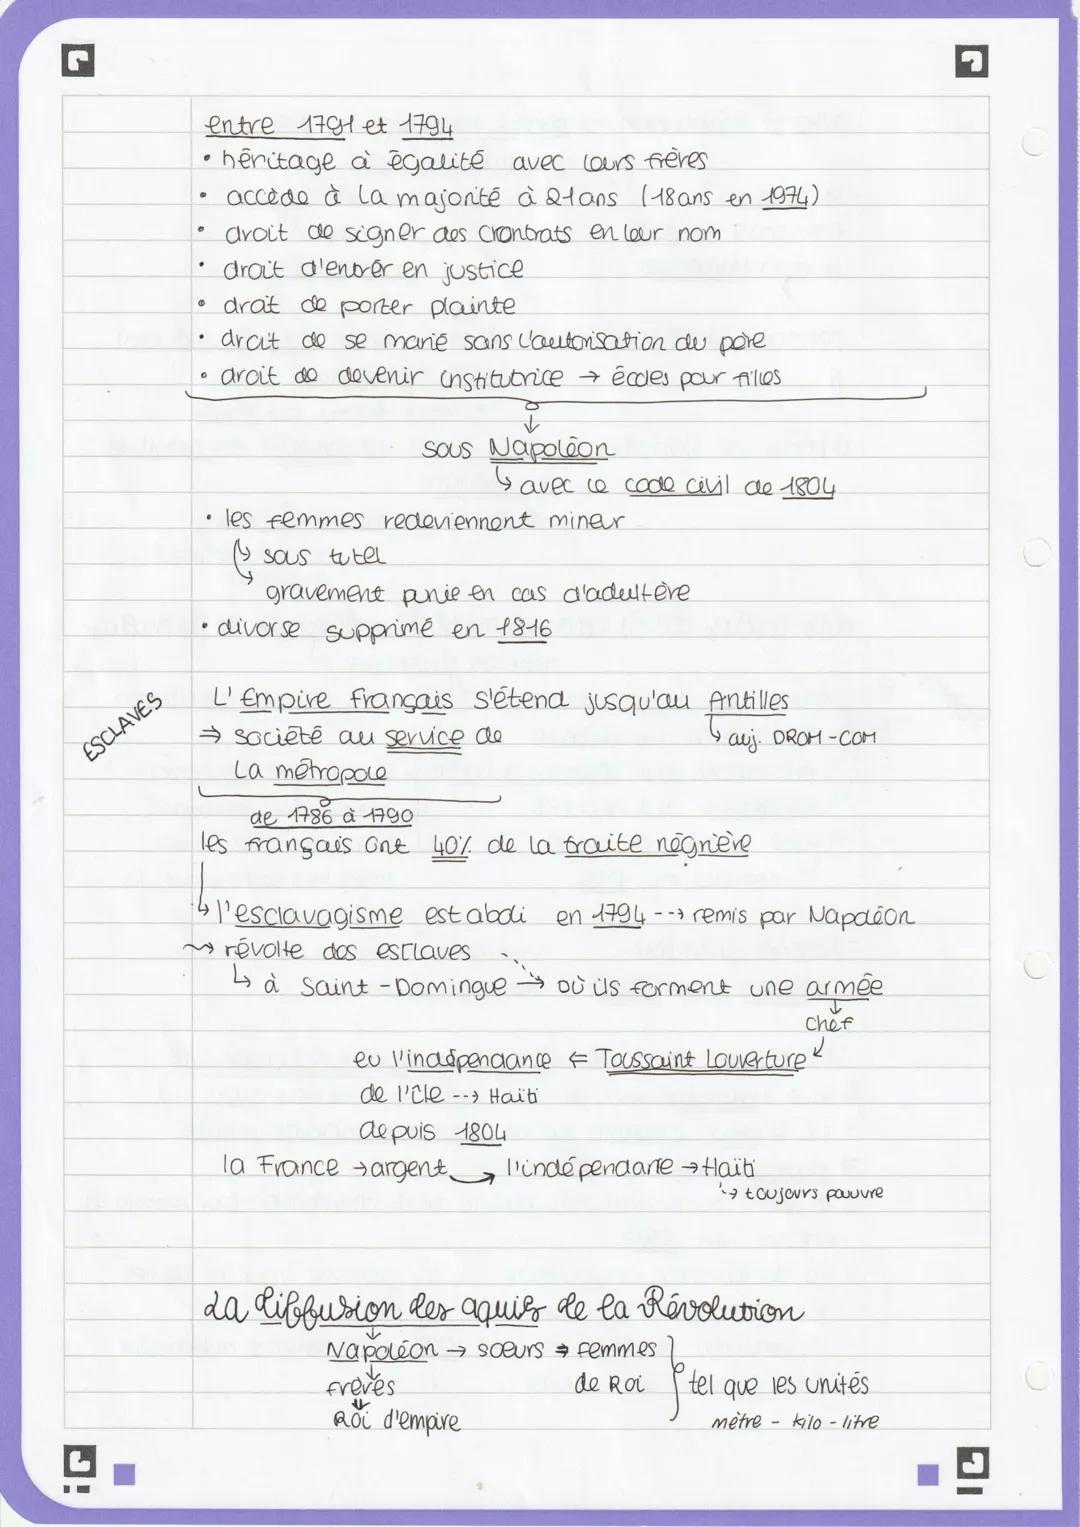 entre 1791 et 1794
• héritage à égalité avec leurs frères
• accède à la majorité à 21ans (18ans en 1974)
• droit de signer des crontrats en leur nom
• droit d'entrer en justice
• droit de porter plainte
• droit de se marié sans l'autorisation du père
• droit de devenir institutrice → écoles pour filles
↓
sous Napoléon
↳ avec le code civil de 1804
• les femmes redeviennent mineur
↳ sous tutel
↳ gravement punie en cas d'adultère
• divorse supprimé en 1816
ESCLAVES
L'Empire français s'étend jusqu'au Antilles
⇒ société au service de ↳ auj. DROM-COM
la métropole
de 1786 à 1790
les français ont 40% de la traite négrière
↳ l'esclavagisme est aboli en 1794 --→ remis par Napoléon
⇝ révolte des esclaves
↳ à Saint-Domingue → où ils forment une armée
↓
chef
eu l'indépendance ⇐ Toussaint Louverture
de l'île --→ Haïti
depuis 1804
la France → argent → l'indépendante → Haïti
↳ toujours pauvre
La diffusion des aquis de la Révolution
Napoléon → soeurs ⇒ femmes
frères de Roi tel que les unités
Roi d'empire mètre - kilo - litre